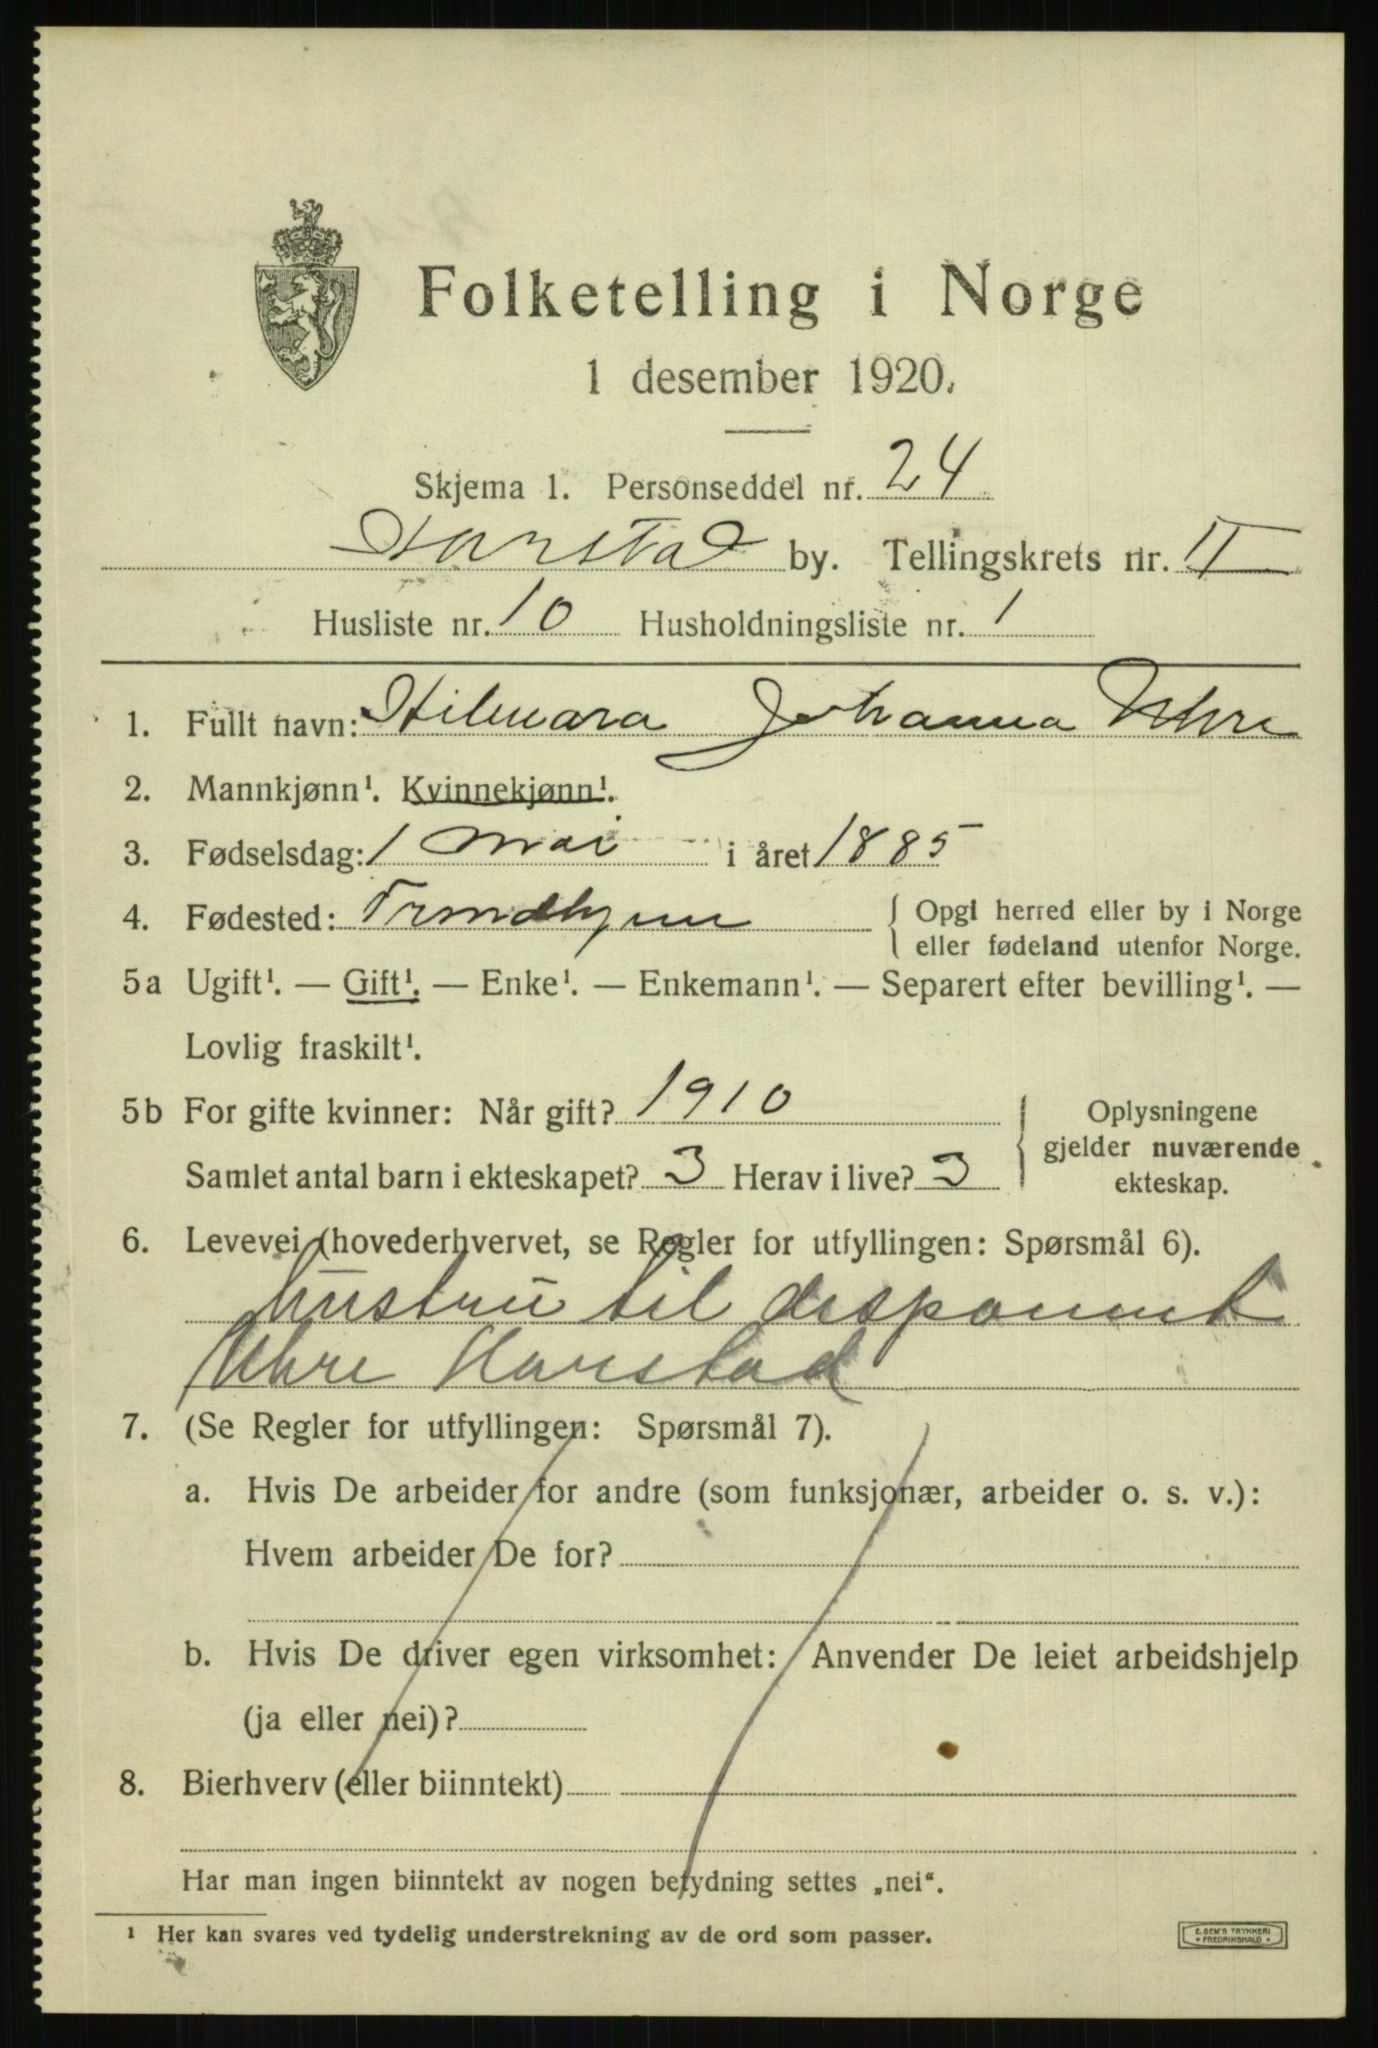 Folketelling i Norge
1 desember 1920.
Skjema 1. Personseddel nr. 24
Harstad by. Tellingskrets nr. II
Husliste nr. 10 Husholdningsliste nr. 1
1. Fullt navn: Hilmara Johanna Uhre
2. Mannkjønn¹. Kvinnekjønn¹.
3. Fødselsdag: 1 mai i året 1885
4. Fødested: Trondhjem { Opgi herred eller by i Norge
eller fødeland utenfor Norge.
5a Ugift¹. — Gift¹. — Enke¹. — Enkemann¹. — Separert efter bevilling¹. —
Lovlig fraskilt¹.
5b For gifte kvinner: Når gift? 1910
Samlet antal barn i ekteskapet? 3 Herav i live? 3
Oplysningene
gjelder nuværende
ekteskap.
6. Levevei (hovederhvervet, se Regler for utfyllingen: Spørsmål 6).
hustru til disponent
Uhre Harstad
7. (Se Regler for utfyllingen: Spørsmål 7).
a. Hvis De arbeider for andre (som funksjonær, arbeider o. s. v.):
Hvem arbeider De for?
b. Hvis De driver egen virksomhet: Anvender De leiet arbeidshjelp
(ja eller nei)?
8. Bierhverv (eller biinntekt)
Har man ingen biinntekt av nogen betydning settes „nei“.
¹ Her kan svares ved tydelig understrekning av de ord som passer.
E. SEM'S TRYKKERI
* FREDRIKSHALD *